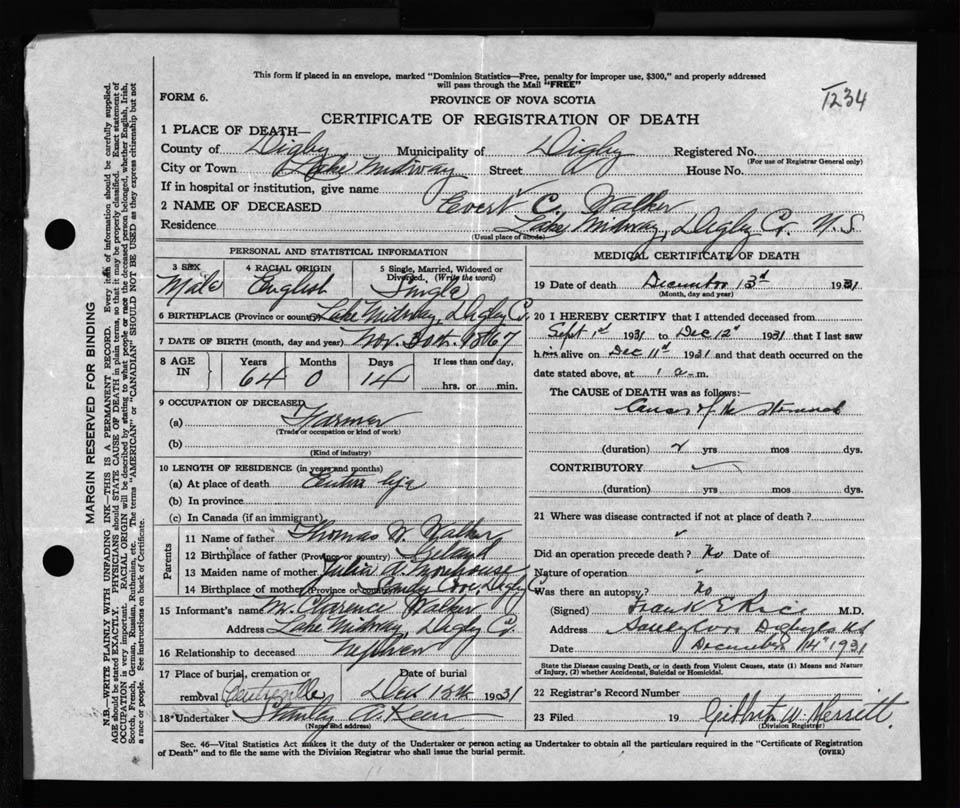 This form if placed in an envelope, marked "Dominion Statistics—Free, penalty for improper use, $300," and properly addressed
will pass through the Mail "FREE"
1234
FORM 6.
PROVINCE OF NOVA SCOTIA
CERTIFICATE OF REGISTRATION OF DEATH
1 PLACE OF DEATH—
County of Digby Municipality of Digby Registered No.
(For use of Registrar General only)
City or Town Lake Midway Street House No.
If in hospital or institution, give name
2 NAME OF DECEASED Evert C. Walker
Residence Lake Midway, Digby Co. N.S.
(Usual place of abode)
PERSONAL AND STATISTICAL INFORMATION
3 SEX Male
4 RACIAL ORIGIN English
5 Single, Married, Widowed or Divorced. (Write the word) Single
6 BIRTHPLACE (Province or country) Lake Midway, Digby Co.
7 DATE OF BIRTH (month, day and year) Nov. 30th. 1867
8 AGE IN Years 64 Months 0 Days 14 If less than one day, hrs. or min.
9 OCCUPATION OF DECEASED
(a) Farmer
(Trade or occupation or kind of work)
(b)
(Kind of industry)
10 LENGTH OF RESIDENCE (in years and months)
(a) At place of death Entire life
(b) In province
(c) In Canada (if an immigrant)
Parents
11 Name of father Thomas W. Walker
12 Birthplace of father (Province or country) Ireland
13 Maiden name of mother Julia A. Morehouse
14 Birthplace of mother (Province or country) Sandy Cove, Digby Co.
15 Informant's name Mr. Clarence Walker
Address Lake Midway, Digby Co.
16 Relationship to deceased Nephew
17 Place of burial, cremation or removal Centreville
Date of burial Dec 15th 1931
18 Undertaker Stanly A.
(Name and address)
MEDICAL CERTIFICATE OF DEATH
19 Date of death December 13d 1931
(Month, day and year)
20 I HEREBY CERTIFY that I attended deceased from
Sept 1st 1931 to Dec 12th 1931 that I last saw
him alive on Dec 11th 1931 and that death occurred on the
date stated above, at 1 a.m.
The CAUSE OF DEATH was as follows:
Cancer of the stomach
(duration) 2 yrs mos dys.
CONTRIBUTORY
(duration) yrs mos dys.
21 Where was disease contracted if not at place of death?
Did an operation precede death? No Date of
Nature of operation
Was there an autopsy? No
(Signed) Frank E Rice M.D.
Address Sandy Cove Digby Co N.S.
Date December 14th 1931
State the Disease causing Death, or in death from Violent Causes, state (1) Means and Nature
of Injury, (2) whether Accidental, Suicidal or Homicidal.
22 Registrar's Record Number
23 Filed 19 Gilbert W. Merritt.
(Division Registrar)
Sec. 46—Vital Statistics Act makes it the duty of the Undertaker or person acting as Undertaker to obtain all the particulars required in the "Certificate of Registration
of Death" and to file the same with the Division Registrar who shall issue the burial permit.
(OVER)
MARGIN RESERVED FOR BINDING
N.B.—WRITE PLAINLY WITH UNFADING INK—THIS IS A PERMANENT RECORD. Every item of information should be carefully supplied.
AGE should be stated EXACTLY. PHYSICIANS should STATE CAUSE OF DEATH in plain terms, so that it may be properly classified. Exact statement of
OCCUPATION is very important. RACIAL ORIGIN will be described by stating to what people or race the deceased person belonged, whether English, Irish,
Scotch, French, German, Russian, Ruthenian, etc. The terms "AMERICAN" or "CANADIAN" SHOULD NOT BE USED as they express citizenship but not
a race or people. See instructions on back of Certificate.